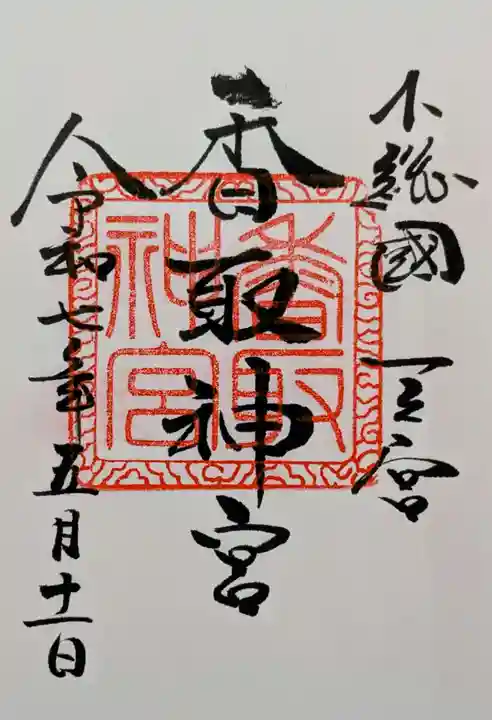 下總國一之宮
香取神宮
令和七年五月十一日
香取
神宮